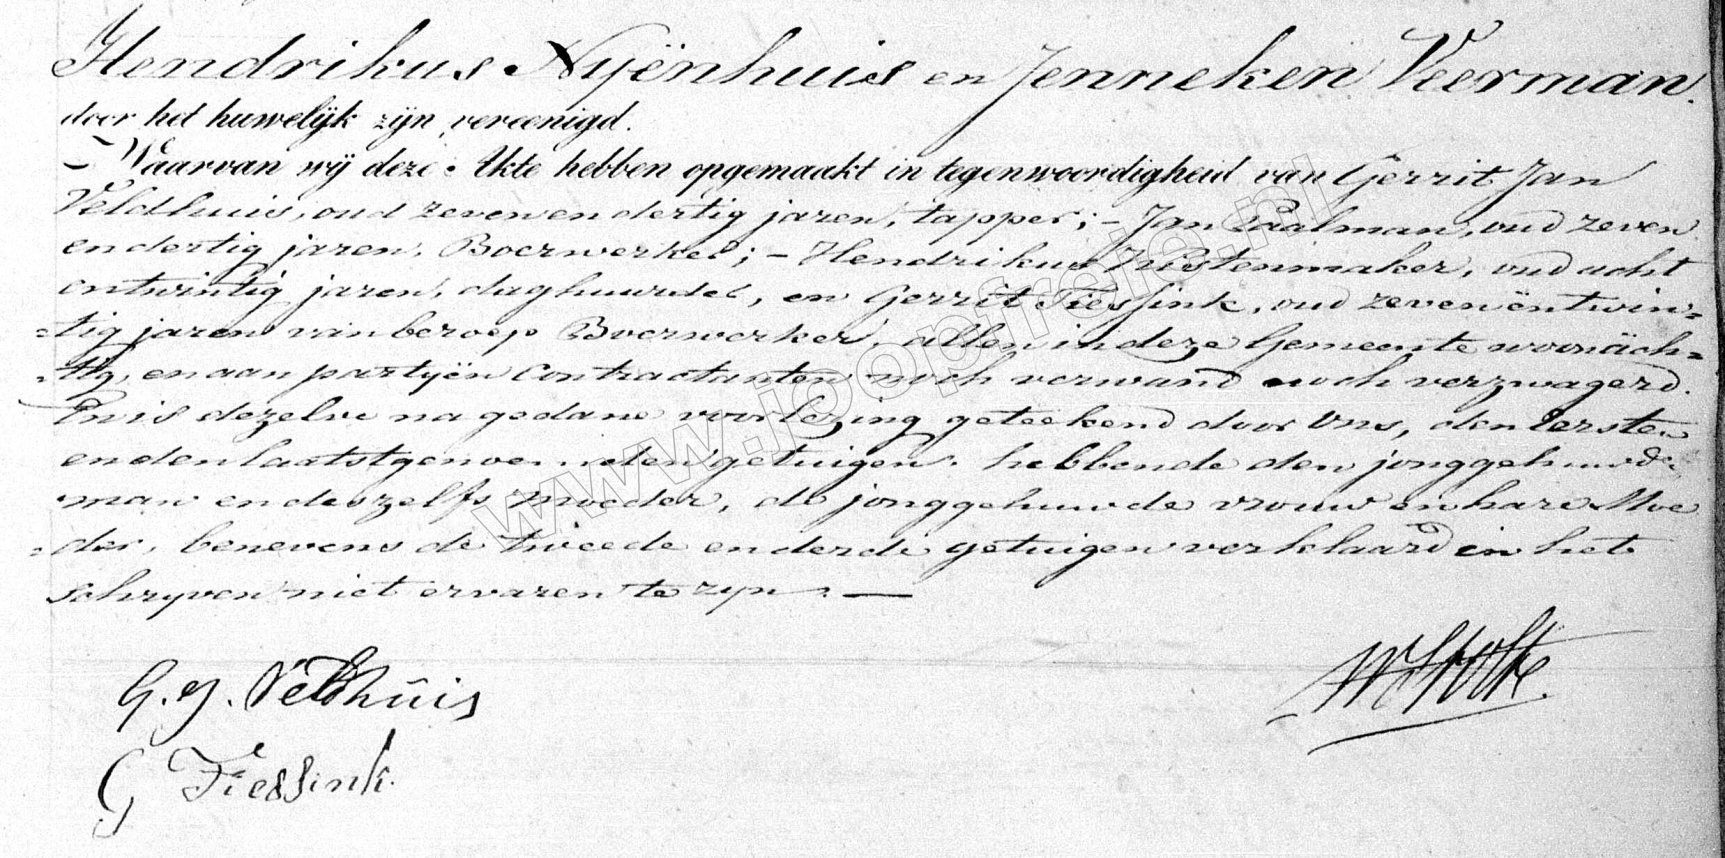 Hendrikus Nyënhuis en Jenneken Veerman.
door het huwelijk zijn vereenigd.
– Waarvan wij deze Akte hebben opgemaakt in tegenwoordigheid van Gerrit Jan
Veldhuis, oud zeven en dertig jaren, tapper; – Jan Paalman, oud zeven
en dertig jaren, Boerwerker; – Hendrikus Kistenmaker, oud acht
entwintig jaren, daghuurder, en Gerrit Fiessink, oud zevenëntwin=
=tig jaren van beroep Boerwerker, allen in deze Gemeente woonäch=
=tig, en aan partyën Contractanten noch verwand noch verzwagerd.
En is dezelve na gedane voorlezing geteekend door Ons, den Eersten
en den laatstgenoe den getuigen. hebbende den jonggehuwde
man en deszelfs moeder, de jonggehuwde vrouw en hare Moe
=der, benevens de tweede en derde getuigen verklaard in het
schryven niet ervaren te zyn. —
G. J. Veldhuis
G Fiessink.
www.joopfreje.nl